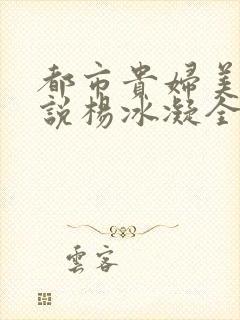 都市貴婦美
說楊冰凝全
雲客